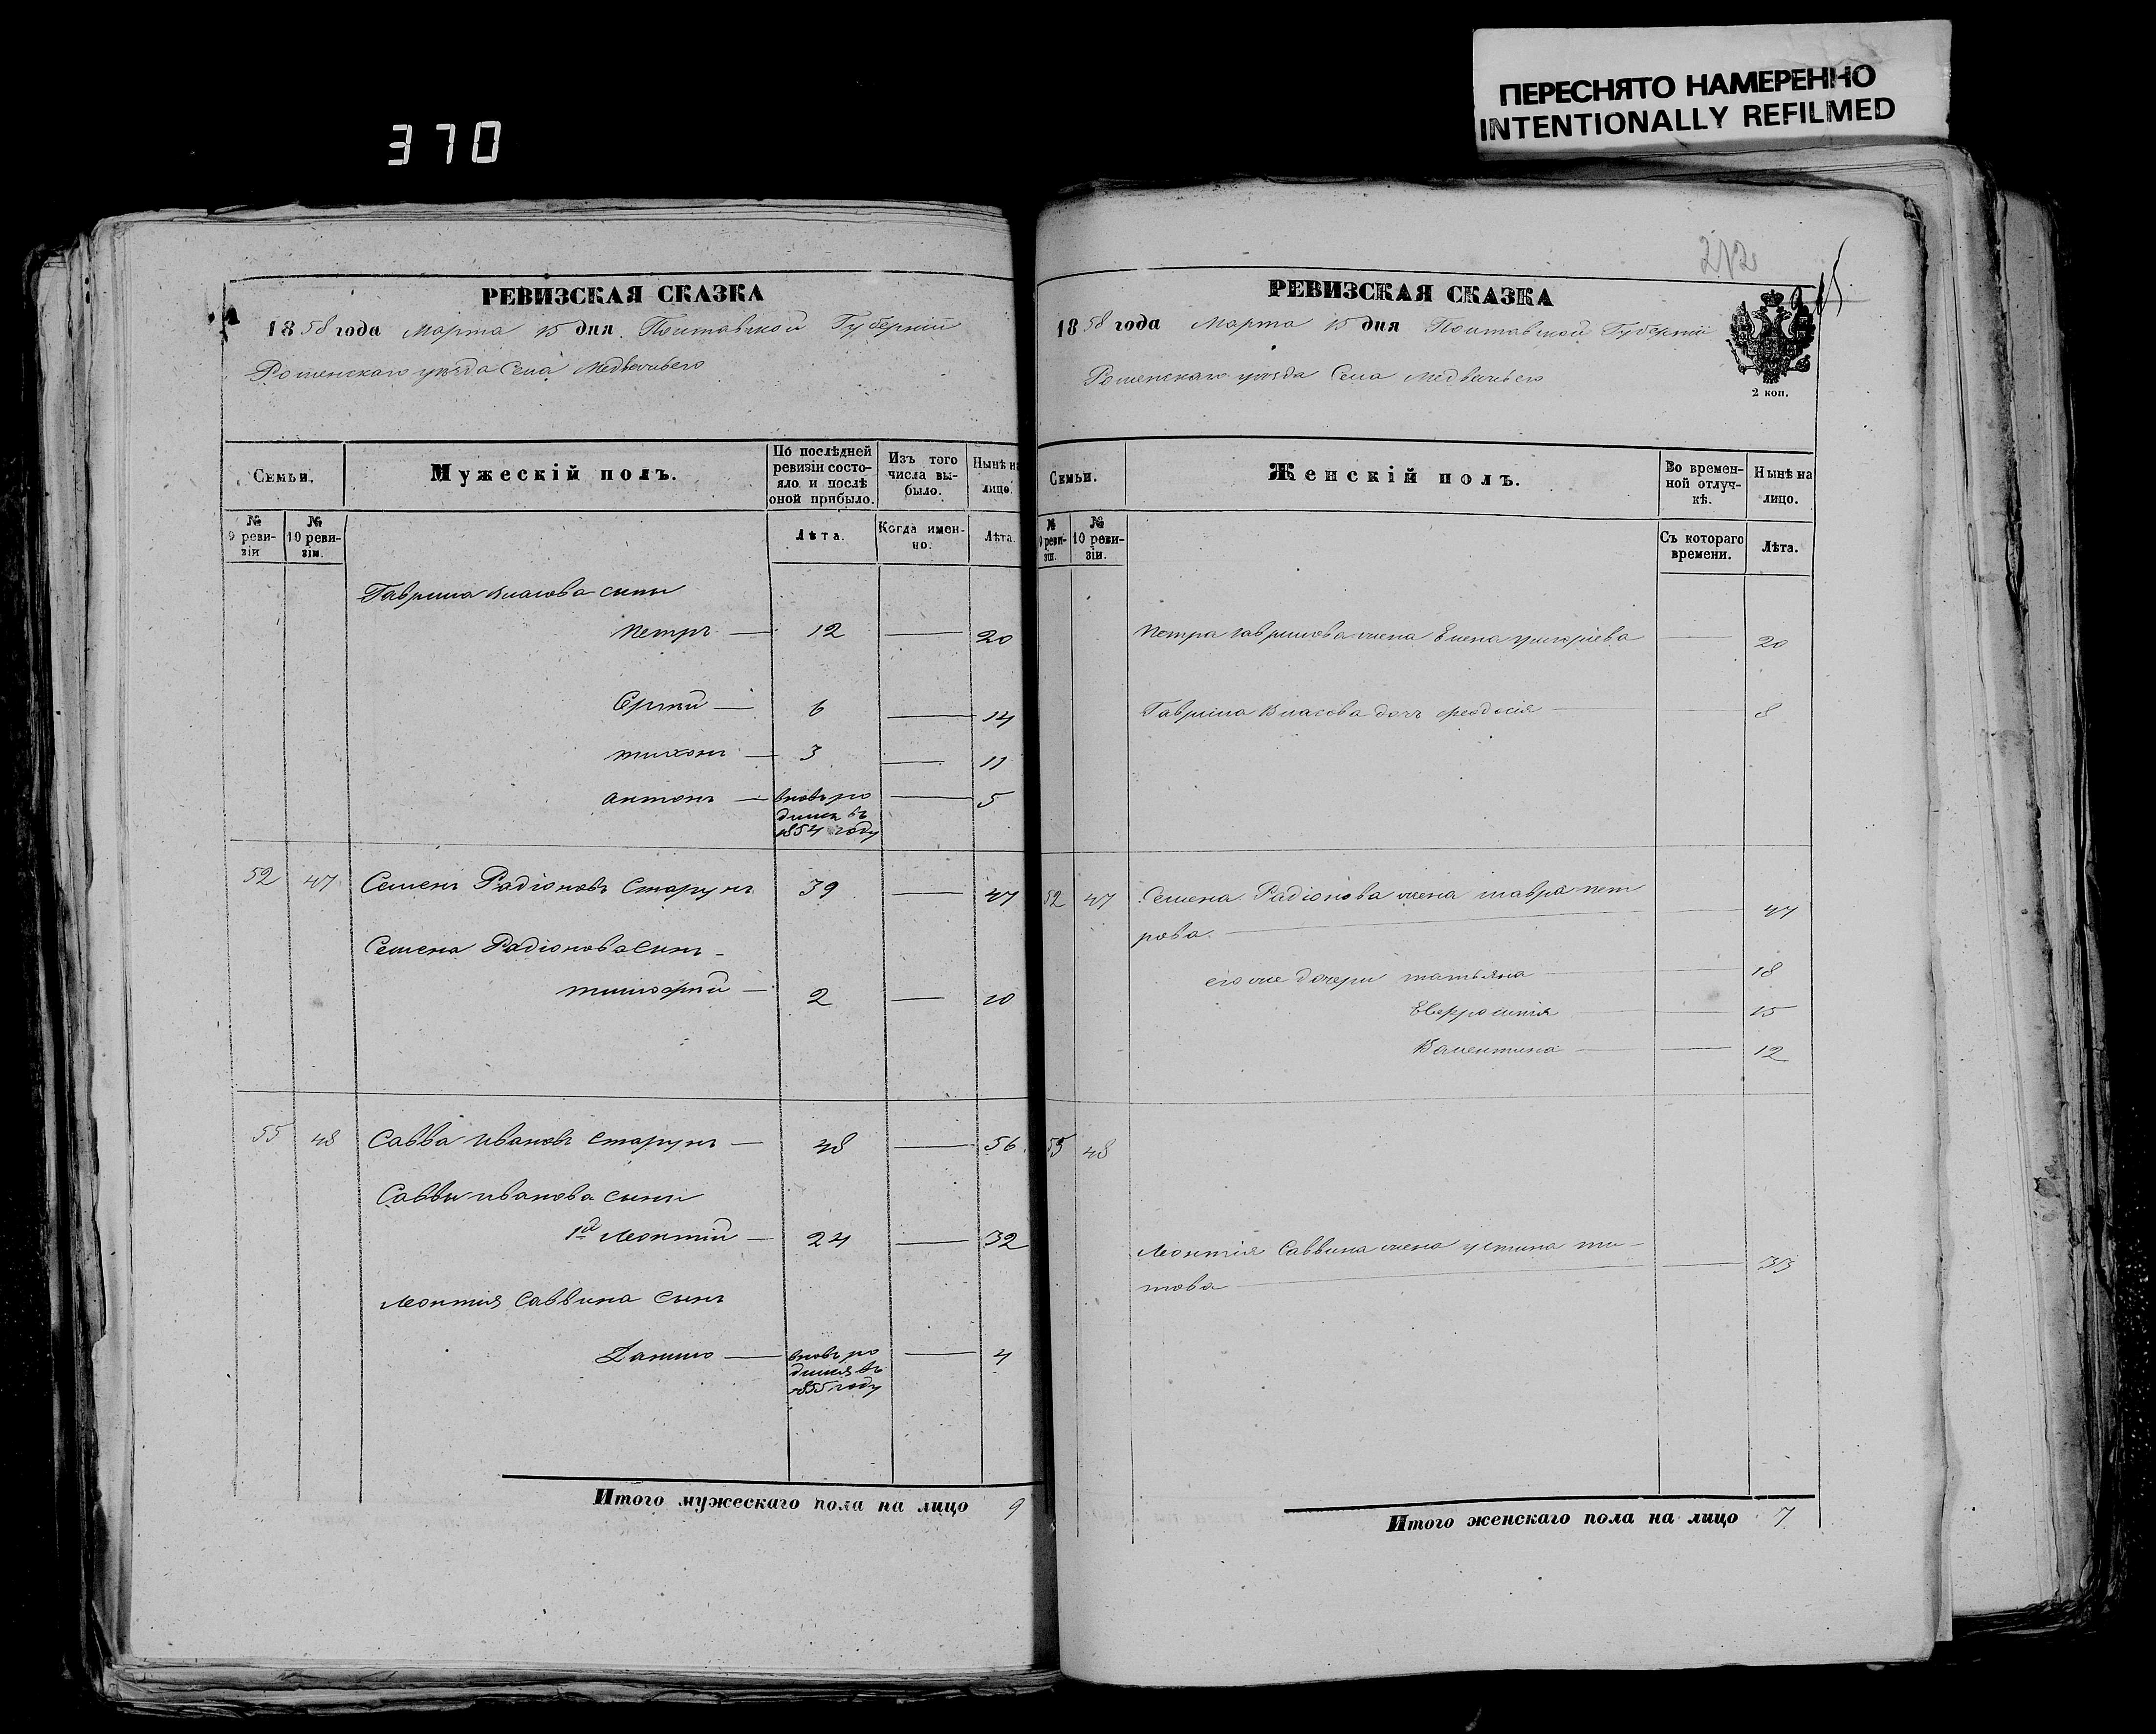 ПЕРЕСНЯТО НАМЕРЕННО
INTENTIONALLY REFILMED
370
РЕВИЗСКАЯ СКАЗКА
1858 года Марта 15 дня Полтавской Губерніи
Роменскаго уѣзда Села Медвежьего
Семьи.
Мужескій полъ.
По послѣдней ревизіи состояло и послѣ оной прибыло.
Изъ того числа выбыло.
Нынѣ на лицо.
№ 9 ревизіи
№ 10 ревизіи.
Лѣта.
Когда именно.
Лѣта.
Гаврила Власова сыны
Петръ — 12 — 20
Сергѣй — 6 — 14
Тихонъ — 3 — 11
Антонъ — вновь ро — 5
дился въ
1854 году
52 47 Семенъ Радіоновъ Старунъ 39 — 47
Семена Радіонова сынъ
Тимофей — 2 — 10
55 48 Савва Ивановъ Старунъ — 48 — 56
Саввы Иванова сыны
1й Леонтій — 24 — 32
Леонтія Саввина сынъ
Данило — вновь ро — 4
дился въ
1855 году
Итого мужескаго пола на лицо 9
212
РЕВИЗСКАЯ СКАЗКА
1858 года Марта 15 дня Полтавской Губерніи
Роменскаго уѣзда Села Медвежьего
2 коп.
Семьи.
Женскій полъ.
Во временной отлучкѣ.
Нынѣ на лицо.
№ 9 ревизіи.
№ 10 ревизіи.
Съ котораго времени.
Лѣта.
Петра Гаврилова жена Елена Григоріева — 20
Гаврила Власова дочь Феодосія — 8
52 47 Семена Радіонова жена Мавра Пет
рова — 47
его же дочери Татьяна — 18
Евфросинія — 15
Валентина — 12
55 48
Леонтія Саввина жена Устина Ти-
това — 33
Итого женскаго пола на лицо 7